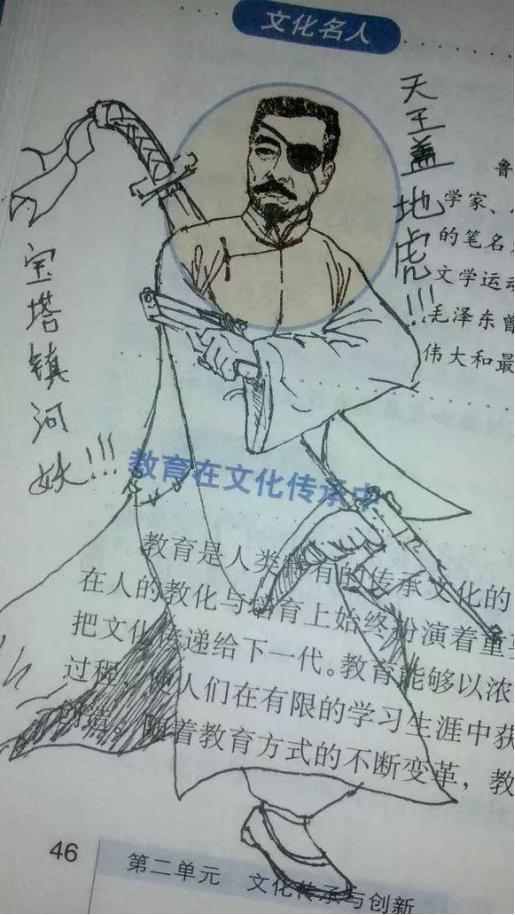 文化名人
天王盖地虎!!!
宝塔镇河妖!!!
鲁
学家、
的笔名
文学运动
毛泽东曾
伟大和最
教育在文化传承中
教育是人类 有的传承文化的
在人的教化与培育上始终扮演着重要
把文化传递给下一代。教育能够以浓
过程, 人们在有限的学习生涯中获
随着教育方式的不断变革，教
46
第二单元 文化传承与创新